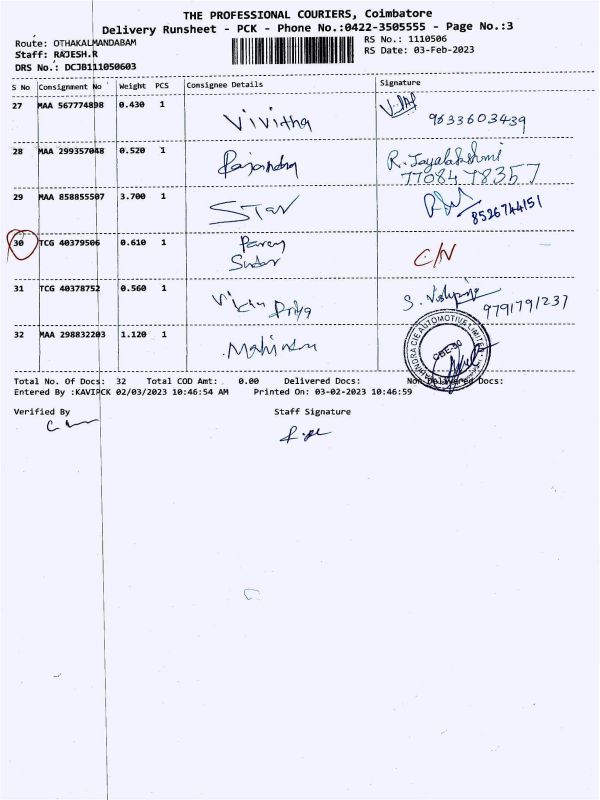 THE PROFESSIONAL COURIERS, Coimbatore
Delivery Runsheet - PCK - Phone No.:0422-3505555 - Page No.:3
Route: OTHAKALMANDABAM
RS No.: 1110506
Staff: RAJESH.R
RS Date: 03-Feb-2023
DRS No.: DCJB111050603
S No Consignment No Weight PCS Consignee Details Signature
27 MAA 567774898 0.430 1 Vivitha 9633603439
28 MAA 299357048 0.520 1 Rajendra R. Jayalakshmi
7708478357
29 MAA 858855507 3.700 1 STAR 8526744151
30 TCG 40379506 0.610 1 C/N
31 TCG 40378752 0.560 1 Priya S. 9791791237
32 MAA 298832203 1.120 1 Mahindra
MAHINDRA CIE AUTOMOTIVE LIMITED
CBE-30
Total No. Of Docs: 32 Total COD Amt: 0.00 Delivered Docs: Non Delivered Docs:
Entered By :KAVIPCK 02/03/2023 10:46:54 AM Printed On: 03-02-2023 10:46:59
Verified By Staff Signature